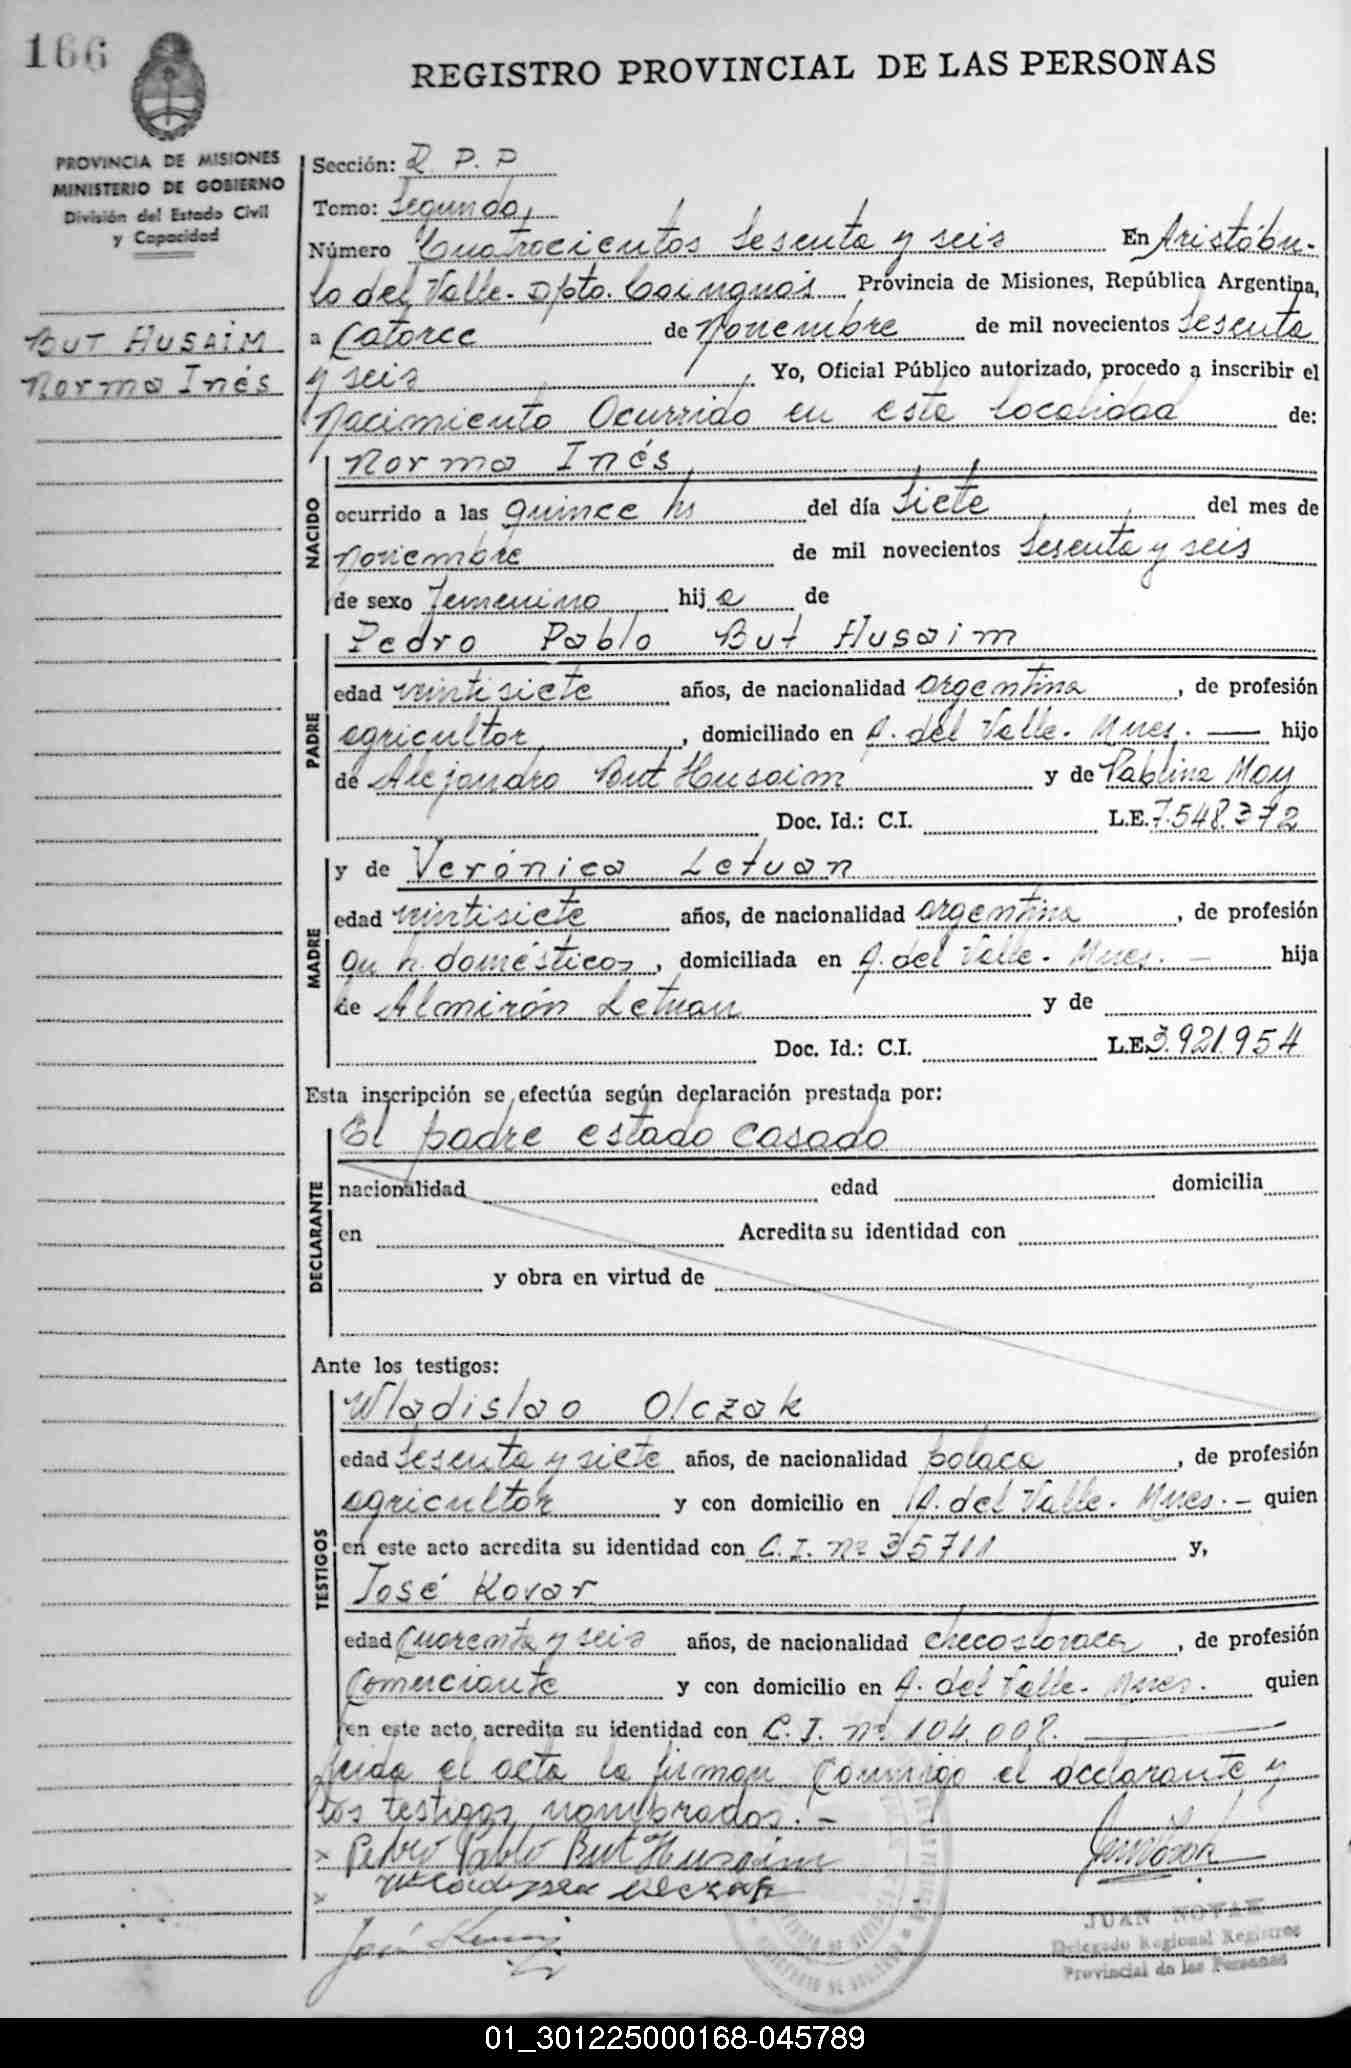 166
REGISTRO PROVINCIAL DE LAS PERSONAS
PROVINCIA DE MISIONES
MINISTERIO DE GOBIERNO
División del Estado Civil
y Capacidad
BUT HUSAIM
Norma Inés
Sección: R. P. P
Tomo: Segundo,
Número Cuatrocientos Sesenta y seis En Aristóbu-
lo del Valle. Dpto. Cainguás Provincia de Misiones, República Argentina,
a Catorce de Noviembre de mil novecientos Sesenta
y seis Yo, Oficial Público autorizado, procedo a inscribir el
Nacimiento Ocurrido en esta localidad de:
NACIDO
Norma Inés
ocurrido a las quince hs del día Siete del mes de
Noviembre de mil novecientos Sesenta y seis
de sexo Femenino hija de
PADRE
Pedro Pablo But Husaim
edad veintisiete años, de nacionalidad argentina, de profesión
agricultor, domiciliado en A. del Valle. Mnes. — hijo
de Alejandro But Husaim y de Pablina May
Doc. Id.: C.I. L.E. 7.548.372
MADRE
y de Verónica Letvan
edad veintisiete años, de nacionalidad argentina, de profesión
qu h. domésticos, domiciliada en A. del Valle. Mnes. — hija
de Almirón Letvan y de
Doc. Id.: C.I. L.E. 3.921.954
Esta inscripción se efectúa según declaración prestada por:
DECLARANTE
El padre estado casado
nacionalidad edad domicilia
en Acredita su identidad con
y obra en virtud de
Ante los testigos:
TESTIGOS
Wladislao Olczak
edad Sesenta y siete años, de nacionalidad polaca, de profesión
agricultor y con domicilio en A. del Valle. Mnes. — quien
en este acto acredita su identidad con C. I. nº 35711 y,
José Kovar
edad Cuarenta y seis años, de nacionalidad checoslovaca, de profesión
Comerciante y con domicilio en A. del Valle. Mnes. quien
en este acto acredita su identidad con C. I. nº 104.008. —
Leida el acta la firman conmigo el declarante y
los testigos nombrados. —
x Pedro Pablo But Husaim
x
José
JUAN NOVAK
Delegado Regional Registros
Provincial de las Personas
01_301225000168-045789